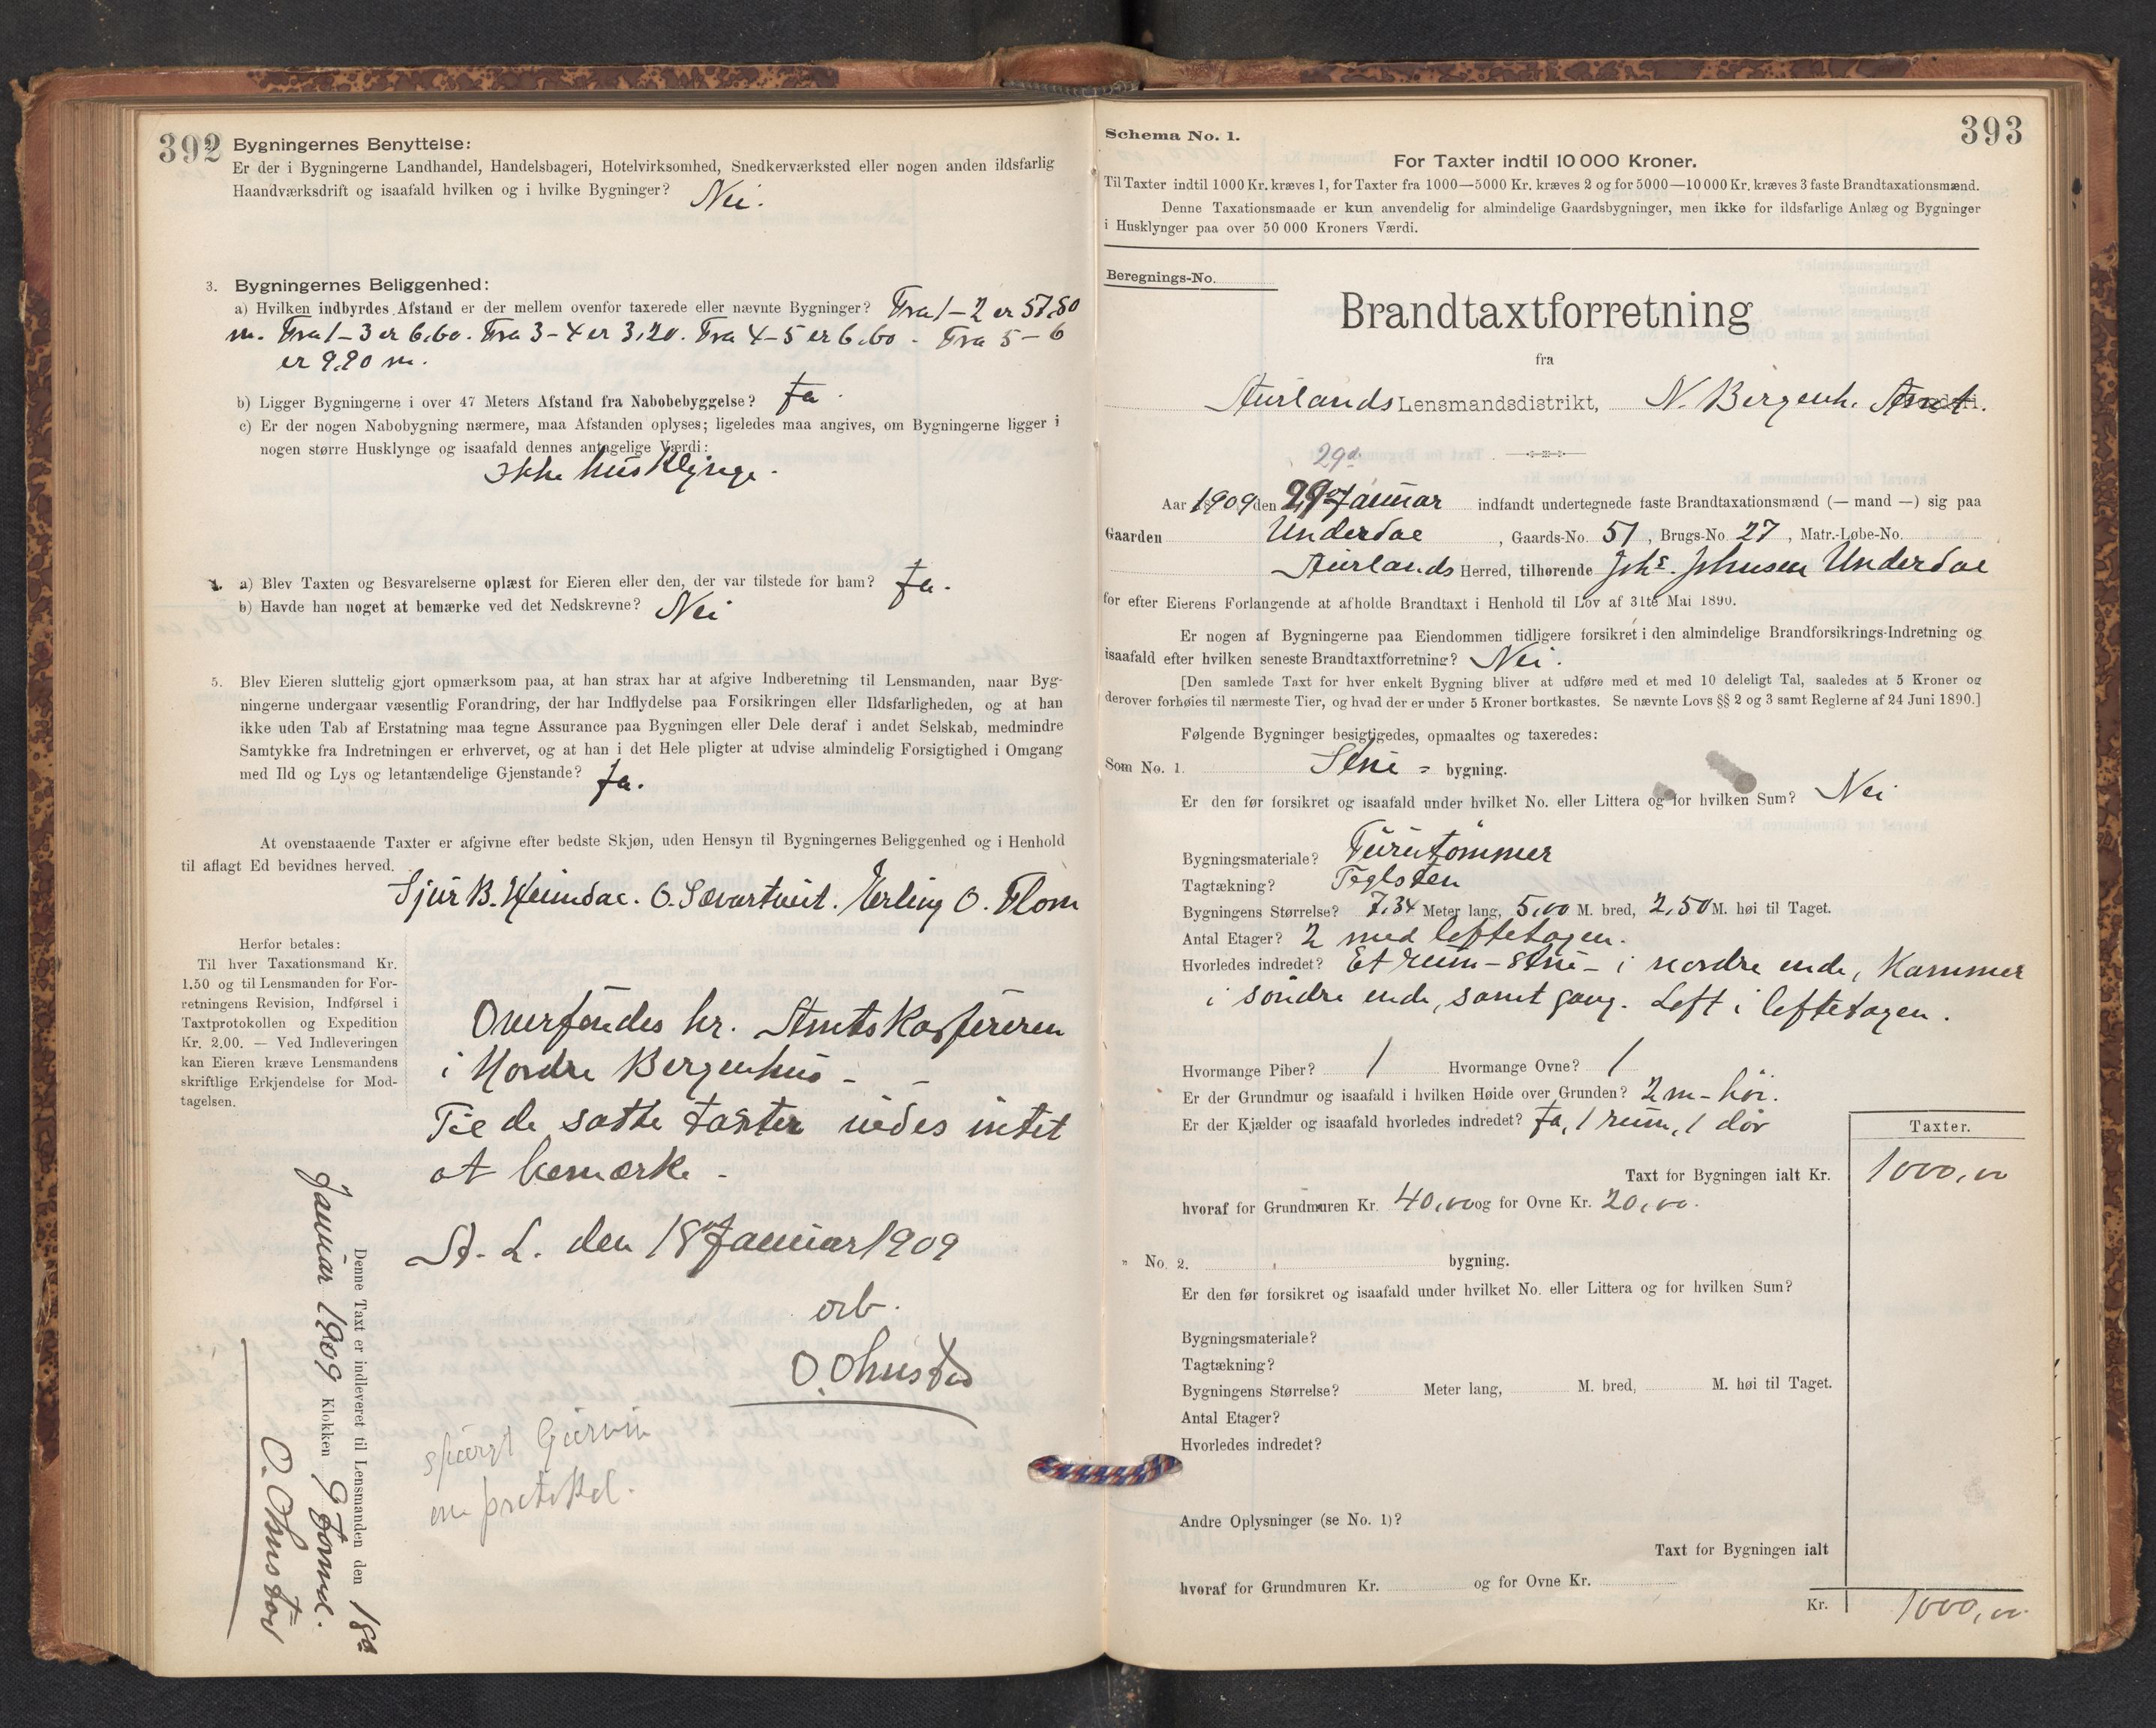 392
Bygningernes Benyttelse:
Er der i Bygningerne Landhandel, Handelsbageri, Hotelvirksomhed, Snedkerværksted eller nogen anden ildsfarlig
Haandværksdrift og isaafald hvilken og i hvilke Bygninger? Nei.
3. Bygningernes Beliggenhed:
a) Hvilken indbyrdes Afstand er der mellem ovenfor taxerede eller nævnte Bygninger? Fra 1 - 2 er 57,80
m. Fra 1 - 3 er 6,60. Fra 3 - 4 er 3,20. Fra 4 - 5 er 6,60 - Fra 5 - 6
er 9,90 m.
b) Ligger Bygningerne i over 47 Meters Afstand fra Nabobebyggelse? Ja.
c) Er der nogen Nabobygning nærmere, maa Afstanden oplyses; ligeledes maa angives, om Bygningerne ligger i
nogen større Husklynge og isaafald dennes antagelige Værdi:
Ikke husklynge.
4. a) Blev Taxten og Besvarelserne oplæst for Eieren eller den, der var tilstede for ham? Ja.
b) Havde han noget at bemærke ved det Nedskrevne? Nei
5. Blev Eieren sluttelig gjort opmærksom paa, at han strax har at afgive Indberetning til Lensmanden, naar Byg-
ningerne undergaar væsentlig Forandring, der har Indflydelse paa Forsikringen eller Ildsfarligheden, og at han
ikke uden Tab af Erstatning maa tegne Assurance paa Bygningen eller Dele deraf i andet Selskab, medmindre
Samtykke fra Indretningen er erhvervet, og at han i det Hele pligter at udvise almindelig Forsigtighed i Omgang
med Ild og Lys og letantændelige Gjenstande? Ja.
At ovenstaaende Taxter er afgivne efter bedste Skjøn, uden Hensyn til Bygningernes Beliggenhed og i Henhold
til aflagt Ed bevidnes herved.
Sjur B. Heimdal. O. Skvartveit. Erling O. Flom
Herfor betales:
Til hver Taxationsmand Kr.
1.50 og til Lensmanden for For-
retningens Revision, Indførsel i
Taxtprotokollen og Expedition
Kr. 2.00. — Ved Indleveringen
kan Eieren kræve Lensmandens
skriftlige Erkjendelse for Mod-
tagelsen.
Oversendes hr. Amtskassereren
i Nordre Bergenhus -
Til de satte taxter vides intet
at bemærke -
A. L. den 18 Januar 1909
arb.
O. Ohnstad
spurgt
en protokol.
Denne Taxt er indleveret til Lensmanden den 18de
Januar 1909 Klokken 9 Formd.
O. Ohnstad
393
Schema No. 1.
For Taxter indtil 10 000 Kroner.
Til Taxter indtil 1000 Kr. kræves 1, for Taxter fra 1000—5000 Kr. kræves 2 og for 5000—10 000 Kr. kræves 3 faste Brandtaxationsmænd.
Denne Taxationsmaade er kun anvendelig for almindelige Gaardsbygninger, men ikke for ildsfarlige Anlæg og Bygninger
i Husklynger paa over 50 000 Kroners Værdi.
Beregnings-No.
Brandtaxtforretning
fra
Aurlands Lensmandsdistrikt, N. Bergenh. Amt.
29d
Aar 1909 den Januar indfandt undertegnede faste Brandtaxationsmænd (— mand —) sig paa
Gaarden Underdal, Gaards-No. 51, Brugs-No. 27, Matr.-Løbe-No.
Aurlands Herred, tilhørende Johs. Johnsen Underdal
for efter Eierens Forlangende at afholde Brandtaxt i Henhold til Lov af 31te Mai 1890.
Er nogen af Bygningerne paa Eiendommen tidligere forsikret i den almindelige Brandforsikrings-Indretning og
isaafald efter hvilken seneste Brandtaxtforretning? Nei.
[Den samlede Taxt for hver enkelt Bygning bliver at udføre med et med 10 deleligt Tal, saaledes at 5 Kroner og
derover forhøies til nærmeste Tier, og hvad der er under 5 Kroner bortkastes. Se nævnte Lovs §§ 2 og 3 samt Reglerne af 24 Juni 1890.]
Følgende Bygninger besigtigedes, opmaaltes og taxeredes:
Som No. 1. Stue - bygning.
Er den før forsikret og isaafald under hvilket No. eller Littera og for hvilken Sum? Nei
Bygningsmateriale? Furutømmer
Tagtækning? Teglsten
Bygningens Størrelse? 7,34 Meter lang, 5,00 M. bred, 2,50 M. høi til Taget.
Antal Etager? 2 med loftetagen.
Hvorledes indredet? Et rum - stue - i nordre ende, Kammer
i søndre ende, samt gang. Loft i loftetagen.
Hvormange Piber? 1 Hvormange Ovne? 1
Er der Grundmur og isaafald i hvilken Høide over Grunden? 2 m - høi.
Er der Kjælder og isaafald hvorledes indredet? Ja, 1 rum, 1 dør
Taxter.
Taxt for Bygningen ialt Kr. 1000,00
hvoraf for Grundmuren Kr. 40,00 og for Ovne Kr. 20,00.
" No. 2. bygning.
Er den før forsikret og isaafald under hvilket No. eller Littera og for hvilken Sum?
Bygningsmateriale?
Tagtækning?
Bygningens Størrelse? Meter lang, M. bred, M. høi til Taget.
Antal Etager?
Hvorledes indredet?
Andre Oplysninger (se No. 1)?
Taxt for Bygningen ialt
hvoraf for Grundmuren Kr. og for Ovne Kr.
Kr. 1000,00